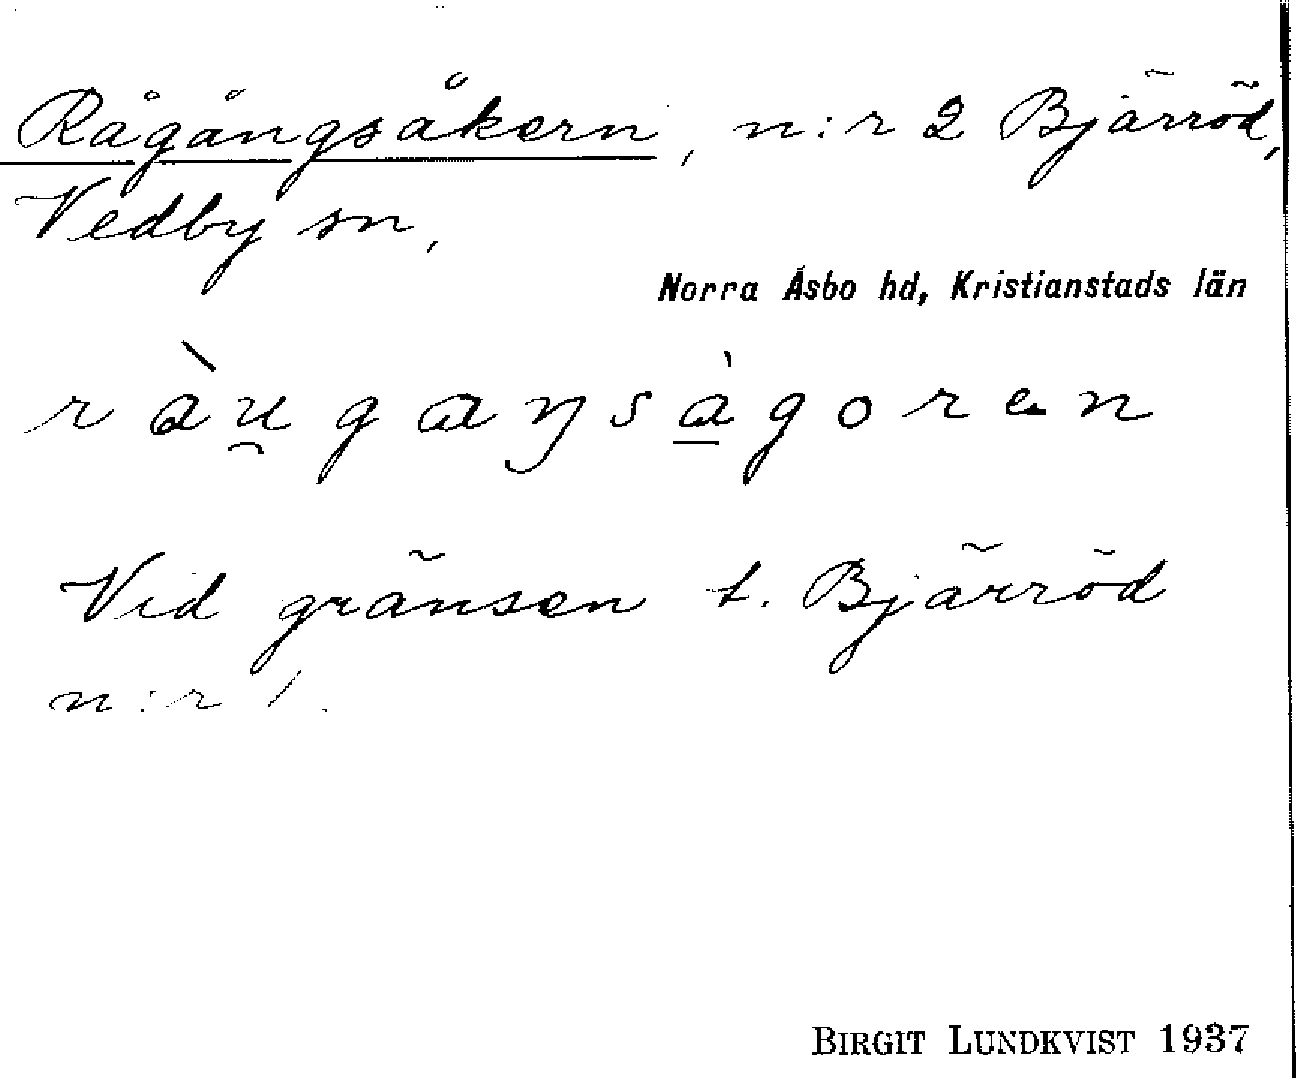 Rågångsåkern, n:r 2 Bjärröd,
Vedby sn,
Norra Åsbo hd, Kristianstads län
ràu̯gaŋsà̱goren
Vid gränsen t. Bjärröd
n:r 1.
BIRGIT LUNDKVIST 1937